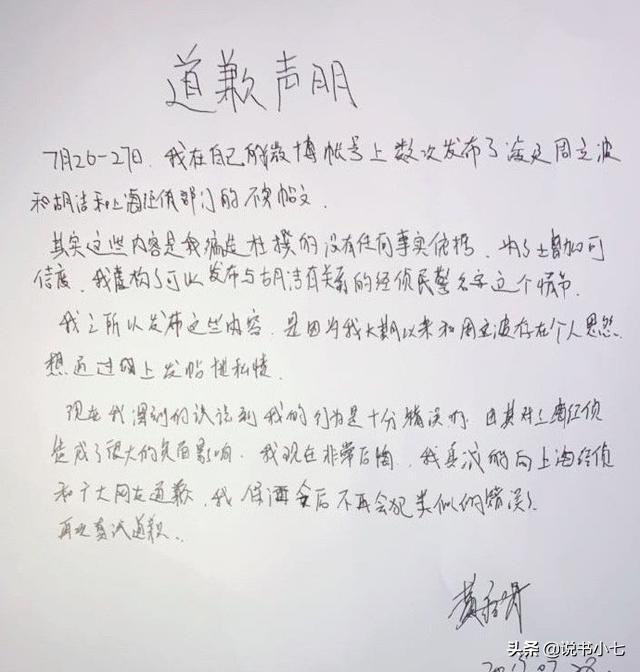 道歉声明
7月26-27日，我在自己的微博帐号上数次发布了涉足周立波
和胡洁和上海经侦部门的不实帖文.
其实这些内容是我编造杜撰的没有任何事实依据，为了增加可
信度，我虚构了可以发布与胡洁有关系的经侦民警名字这个情节.
我之所以发布这些内容，是因为我长期以来和周立波存在个人恩怨
想通过网上发帖泄私愤.
现在我深刻的认识到我的行为是十分错误的，因其对上海经侦
造成了很大的负面影响. 我现在非常后悔，我真诚的向上海经侦
和广大网友道歉，我保证今后不再会犯类似的错误.
再次真诚道歉.
头条 @说书小七